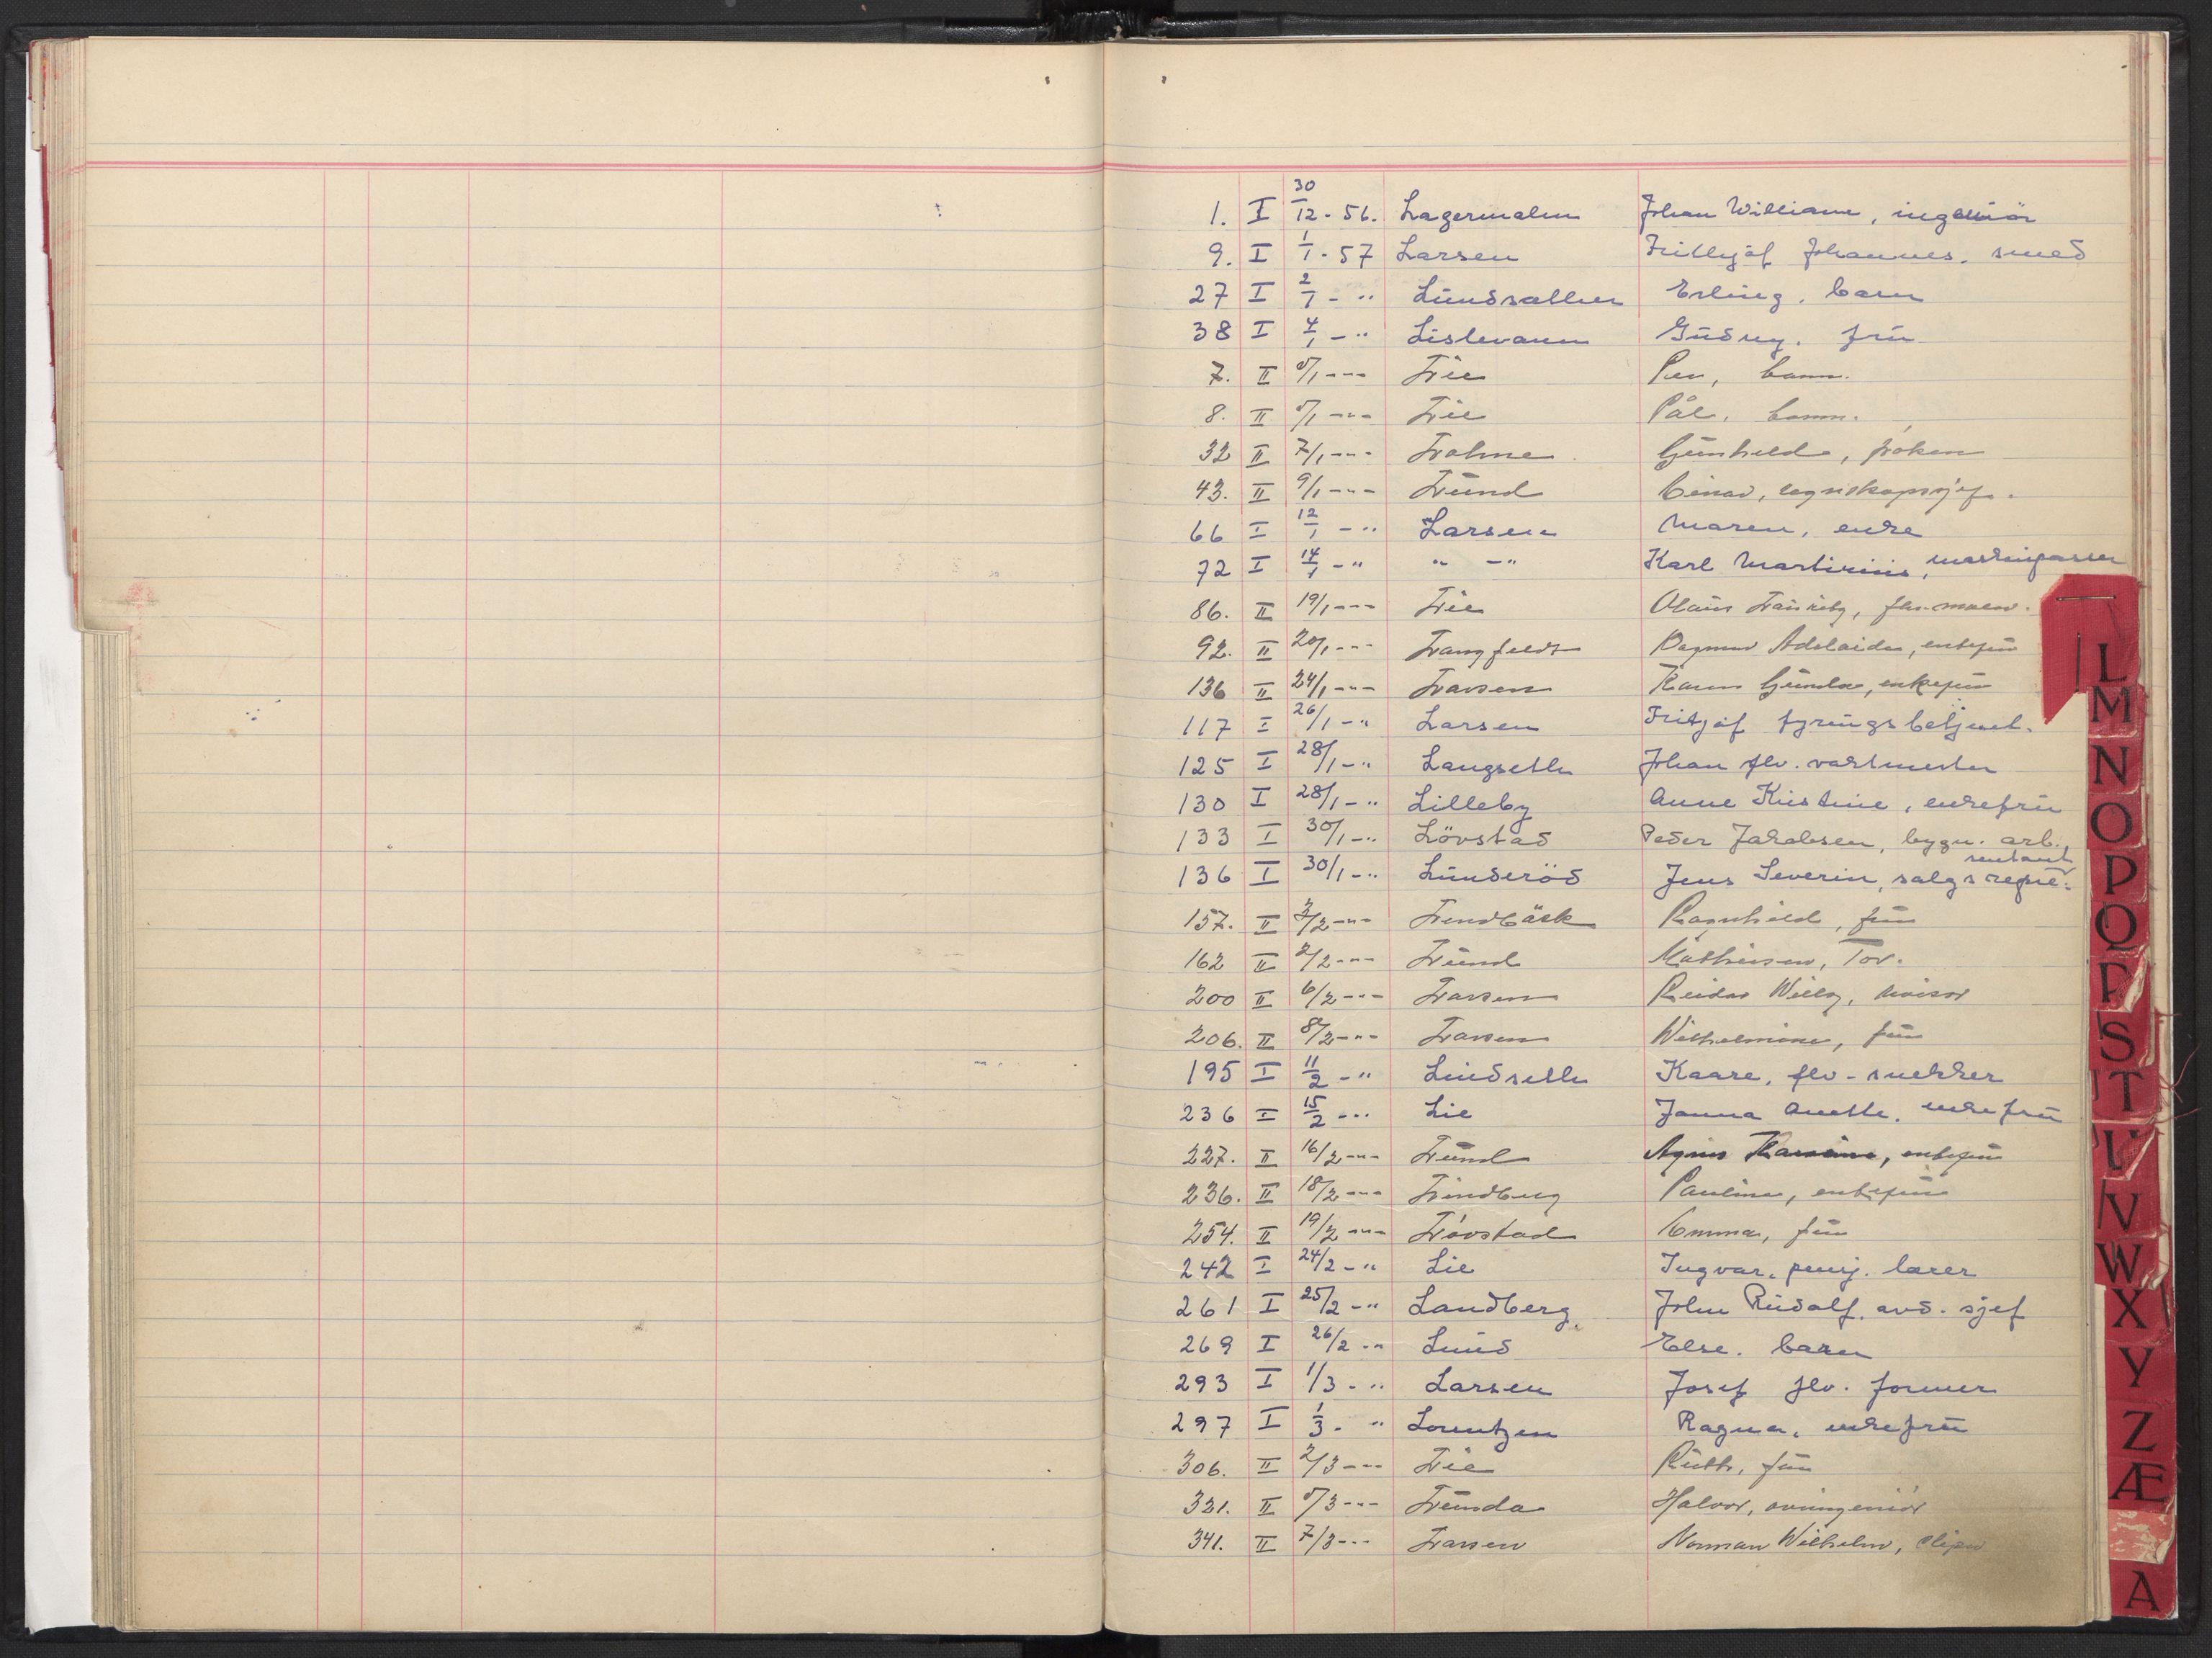 1. I 30/12 - 56. Lagermalm Johan William, ingeniör
9. I 1/1 - 57 Larsen Frithjof Johannes. smed
27 I 2/1 - " Lundsæther Erling. barn
38 I 4/1 - " Lislevann Gudny. fru
7. II 5/1 - " - Lie Per, barn.
8. II 5/1 - " - Lie Pål, barn.
32 II 7/1 - " - Lohne Gunhild, frøken
43. II 9/1 - " - Lund Einar, regnskapssjef.
66 I 12/1 - " Larsen Maren, enke
72 I 14/1 - " " - " Karl Martinius, maskinpasser
86. II 19/1 - " - Lie Olaus, flv.
92. II 20/1 - " - Langfeldt Dagmar Adelaide, enkefru
136 II 24/1 - " - Larsen Karen Gunda, enkefru
117 I 26/1 - " Larsen Fritjof fyringsbetjent.
125 I 28/1 - " Langseth Johan flv. vaktmester
130 I 28/1 - " Lilleby Anne Kristine, enkefru
133 I 30/1 - " Lövstad Peder Jakobsen, bygn. arb.
136 I 30/1 - " Lunderöd Jens Severin, salgsrepre-
sentant
157. II 3/2 - " - Lindbäck Ragnhild, fru
162 II 2/2 - " - Lund Mathiesen, Tor.
200 II 6/2 - " - Larsen Reidar Willy, revisor
206. II 8/2 - " - Larsen Wilhelmine, fru
195 I 11/2 - " Lindseth Kaare, flv - snekker
236 I 15/2 - " Lie Janna Anette. enkefru
227. II 16/2 - " - Lund Agnes, enkefru
236. II 18/2 - " - Lindberg Pauline, enkefru
254. II 19/2 - " - Lövstad Emma, fru
242 I 24/2 - " Lie Ingvar. pensj. lærer
261 I 25/2 - " Landberg John Rudolf. avd. sjef
269 I 26/2 - " Lund Else. barn
293 I 1/3 - " Larsen Josef flv. former
297 I 1/3 - " Lorentzen Ragna, enkefru
306. II 2/3 - " - Lie Ruth, fru
321. II 5/3 - " - Lunda Halvor, avd.ingeniör
341. II 7/3 - " - Larsen Norman Wilhelm, sliper
L
M
N
O
P
Q
R
S
T
U
V
W
X
Y
Z
Æ
A